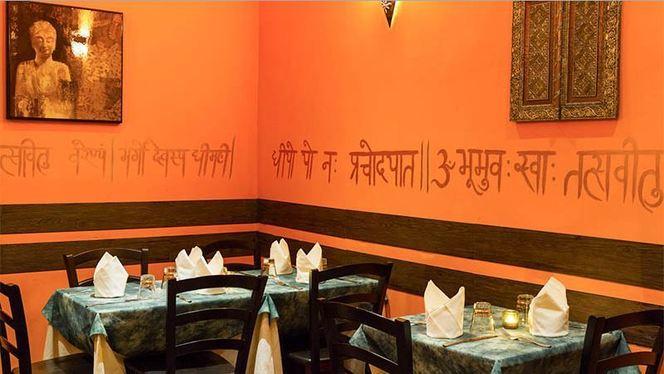 त्सवितु वरेण्यं | भर्गो देवस्य धीमही | धीयो यो नः प्रचोदयात || ॐ भूर्भुवः स्वाः तत्सवीतु